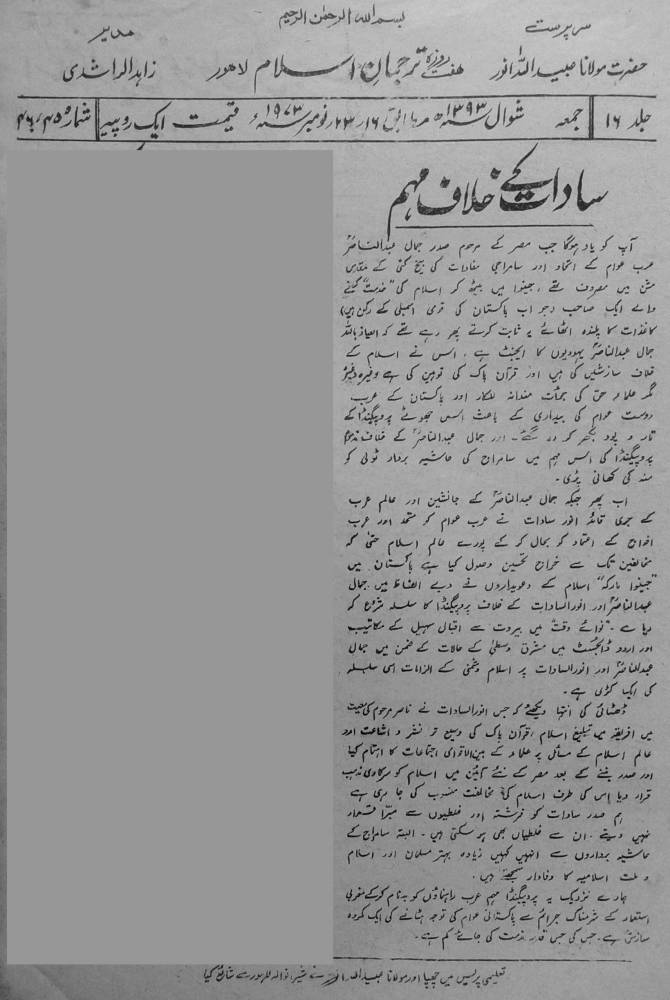 بسم اللہ الرحمٰن الرحیم
سرپرست
مدیر
حضرت مولانا عبیداللہ انور
ہفت روزہ ترجمانِ اسلام لاہور
زاہد الراشدی
جلد ۱۶ جمعہ شوال ۱۳۹۳ھ مطابق ۱۶، ۲۳ نومبر ۱۹۷۳ء قیمت ایک روپیہ شمارہ ۴۵، ۴۶
سادات کے خلاف مہم
آپ کو یاد ہوگا جب مصر کے مرحوم صدر جمال عبدالناصرؒ
عرب عوام کے اتحاد اور سامراجی مفادات کی بیخ کنی کے مقدس
مشن میں مصروف تھے، جنیوا میں بیٹھ کر اسلام کی "خدمت" کرنے
والے ایک صاحب (جو اب پاکستان کی قومی اسمبلی کے رکن ہیں)
کاغذات کا پلندہ اٹھائے یہ ثابت کرتے پھر رہے تھے کہ العیاذ باللہ
جمال عبدالناصرؒ یہودیوں کا ایجنٹ ہے، اس نے اسلام کے
خلاف سازشیں کی ہیں اور قرآن پاک کی توہین کی ہے وغیرہ وغیرہ
مگر علماء حق کی جرأت مندانہ للکار اور پاکستان کے عرب
دوست عوام کی بیداری کے باعث اس جھوٹے پروپیگنڈا کے
تار و پود بکھر کر رہ گئے۔ اور جمال عبدالناصرؒ کے خلاف مذموم
پروپیگنڈا کی اس مہم میں سامراج کی حاشیہ بردار ٹولی کو
منہ کی کھانی پڑی۔
اب پھر جبکہ جمال عبدالناصرؒ کے جانشین اور عالم عرب
کے جری قائد انور سادات نے عرب عوام کو متحد اور عرب
افواج کے اعتماد کو بحال کر کے پورے عالم اسلام حتیٰ کہ
مخالفین تک سے خراج تحسین وصول کیا ہے پاکستان میں
"جنیوا مارکہ" اسلام کے دعویداروں نے دبے الفاظ میں جمال
عبدالناصرؒ اور انورالسادات کے خلاف پروپیگنڈا کا سلسلہ شروع کر
دیا ہے۔ "نوائے وقت" میں بیروت سے اقبال سہیل کے مکاتیب
اور اردو ڈائجسٹ میں مشرق وسطیٰ کے حالات کے ضمن میں جمال
عبدالناصرؒ اور انورالسادات پر اسلام دشمنی کے الزامات اسی سلسلہ
کی ایک کڑی ہے۔
ڈھٹائی کی انتہا دیکھئے کہ جس انورالسادات نے ناصر مرحوم کی معیت
میں افریقہ میں تبلیغ اسلام، قرآن پاک کی وسیع تر نشر و اشاعت اور
عالم اسلام کے مسائل پر علماء کے بین الاقوامی اجتماعات کا اہتمام کیا
اور صدر بننے کے بعد مصر کے نئے آئین میں اسلام کو سرکاری مذہب
قرار دیا اس کی طرف اسلام کی مخالفت منسوب کی جا رہی ہے
ہم صدر سادات کو فرشتہ اور غلطیوں سے مبرّا قرار
نہیں دیتے۔ ان سے غلطیاں بھی ہو سکتی ہیں۔ البتہ سامراج کے
حاشیہ برداروں سے انہیں کہیں زیادہ بہتر مسلمان اور اسلام
و ملت اسلامیہ کا وفادار سمجھتے ہیں۔
ہمارے نزدیک یہ پروپیگنڈا مہم عرب راہنماؤں کو بدنام کر کے مغربی
استعمار کے شرمناک جرائم سے پاکستانی عوام کی توجہ ہٹانے کی ایک مکروہ
سازش ہے۔ جس کی جس قدر مذمت کی جائے کم ہے۔
تعلیمی پریس میں چھپا اور مولانا عبیداللہ انور نے شیرانوالہ لاہور سے شائع کیا